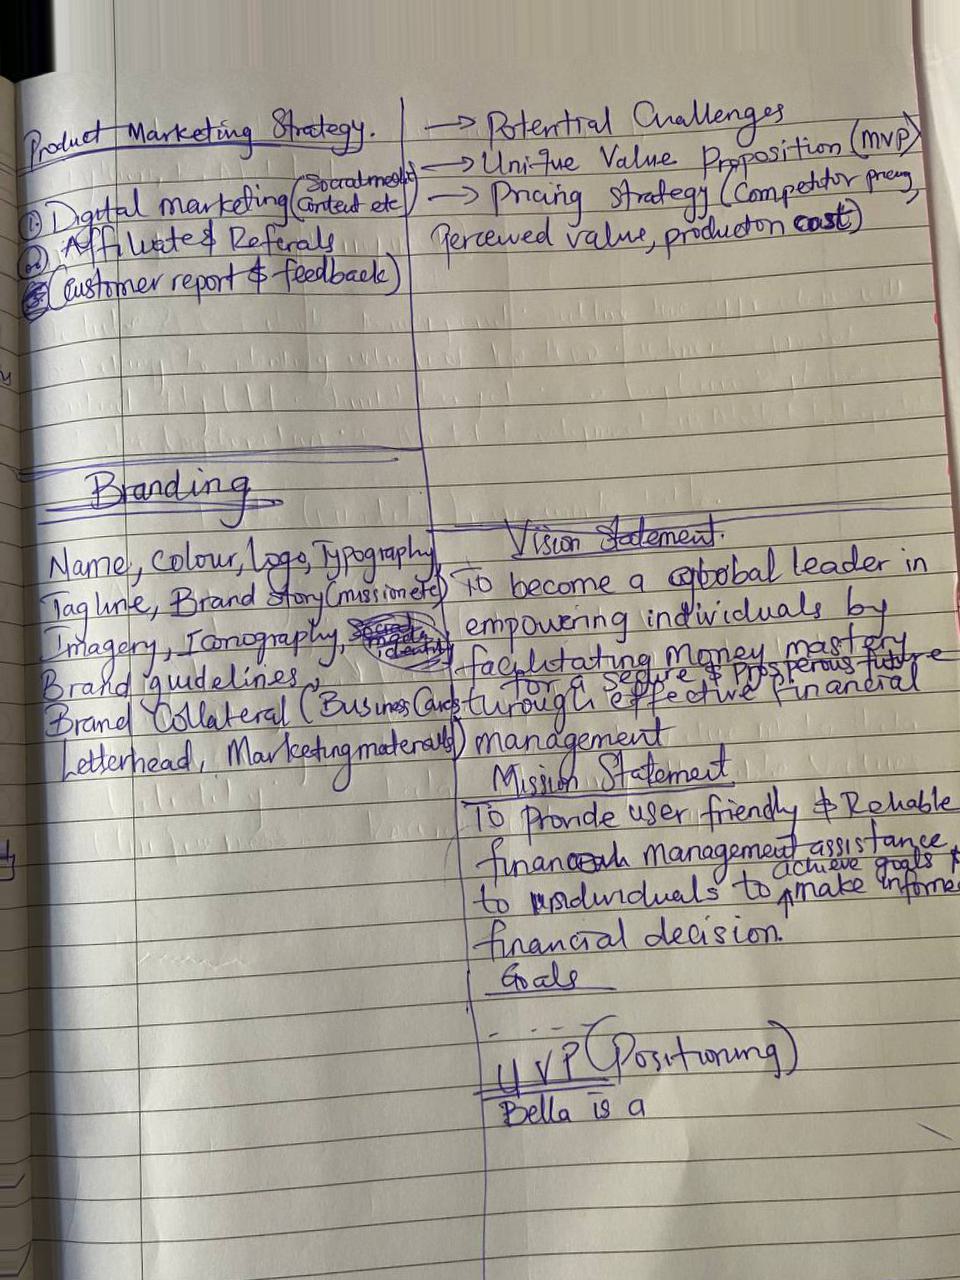 Product Marketing Strategy.
1. Digital marketing (Social media, Content etc)
2. Affiliate & Referals
(Customer report & feedback)
→ Potential Challenges
→ Unique Value Proposition (MVP)
→ Pricing Strategy (Competitor pricing,
Perceived value, production cost)
Branding
Name, Colour, Logo, Typography
Tagline, Brand story (mission etc)
Imagery, Iconography,
Brand guidelines,
Brand Collateral (Business Cards
Letterhead, Marketing materials)
Vision Statement.
To become a global leader in
empowering individuals by
facilitating money mastery
for a secure & prosperous future
through effective financial
management
Mission Statement
To Provide user friendly & Reliable
financial management assistance
to individuals to achieve goals & make informed
financial decision.
Goals
UVP (Positioning)
Bella is a